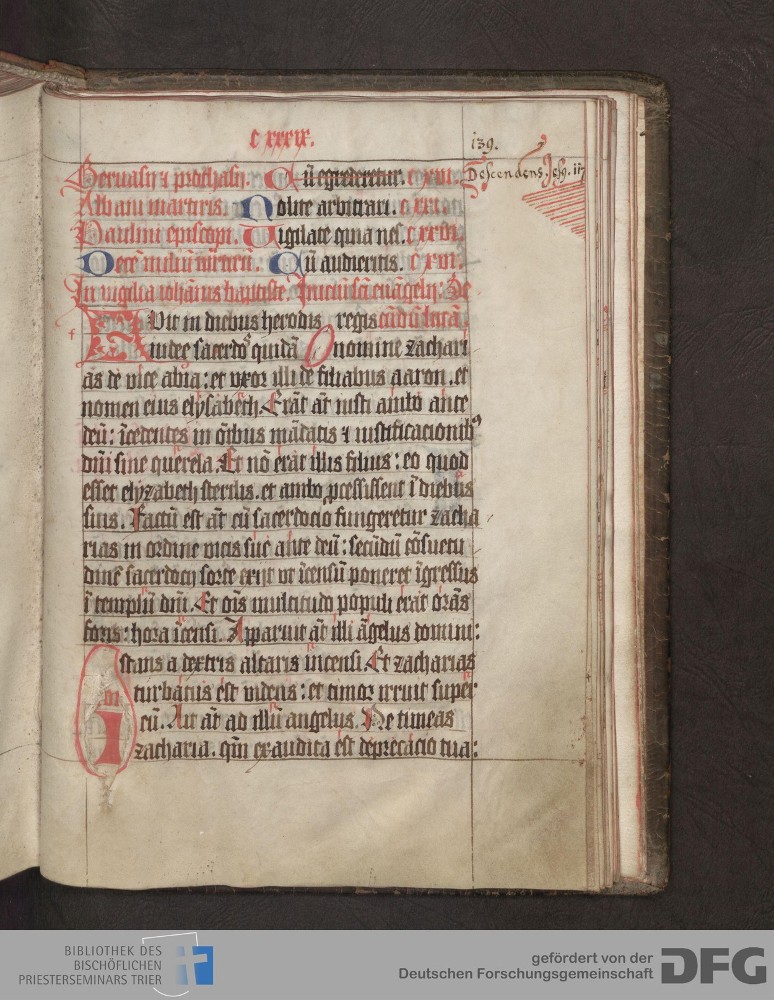 c xxxix.
139.
Geruasij ⁊ prothasij. Cū egrederetur. c xvi.
Descendens Jesꝯ. ii
Albani martiris. Nolite arbitrari. c xxi
Paulini episcopi. Vigilate quia nes. c xxiii.
Decē miliū m̄rtirū. Cū audieritis. c xvi.
In vigilia iohānis baptiste. Iniciū sc̄i euāgelij. Se
FVit in diebus herodis regis cūdū lucā
iudee sacerdos quidā nomine zachari
as de vice abia: et vxor illi de filiabus aaron. et
nomen eius elysabeth. Erāt aūt iusti ambo ante
deū: īcedentes in oībus mādatis ⁊ iustificacionibꝯ
dn̄i sine querela. Et nō erat illis filius: eo quod
esset elyzabeth sterilis. et ambo ꝓcessissent ī diebus
suis. Factū est aūt cū sacerdocio fungeretur zacha
rias in ordine vicis sue ante deū: secūdū cōsuetu
dinē sacerdocij sorte exijt vt īcensū poneret īgressus
ī templū dn̄i. Et oīs multitudo populi erat orās
foris: hora īcensi. Apparuit aūt illi āgelus domini:
stans a dextris altaris incensi. Et zacharias
turbatus est videns: et timor irruit super
eū. Ait aūt ad illū angelus. Ne timeas
zacharia. qm̄ exaudita est deprecacio tua:
BIBLIOTHEK DES
BISCHÖFLICHEN
PRIESTERSEMINARS TRIER
gefördert von der
Deutschen Forschungsgemeinschaft DFG